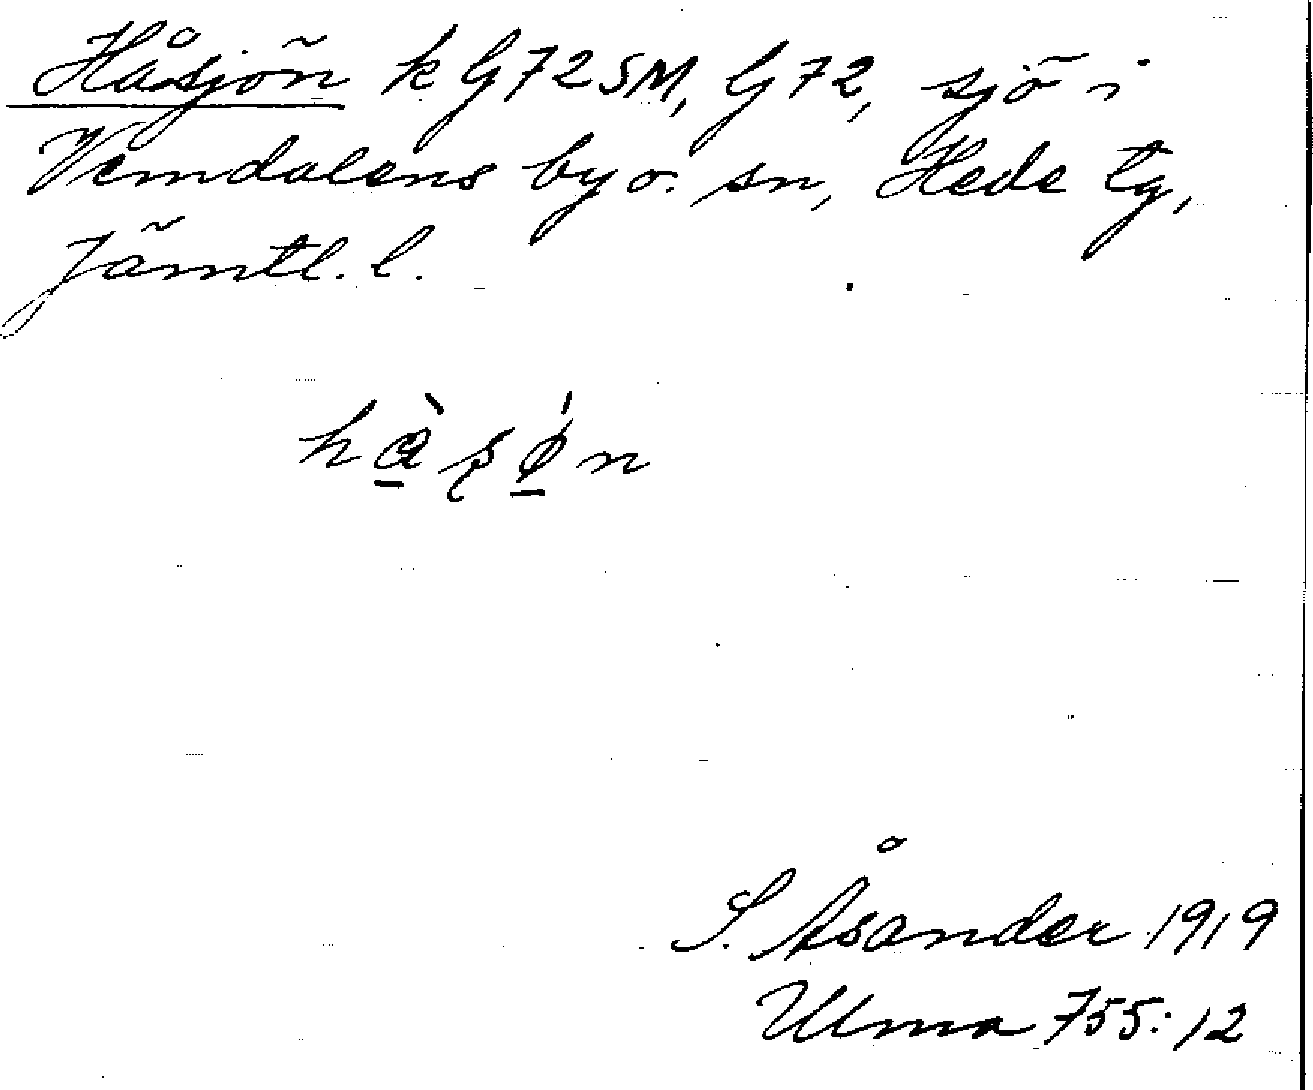 Håsjön k G72SM, G72, sjö i
Vemdalens by o. sn, Hede tg,
Jämtl. l.
hὰ̲ʂǿ̲n
S. Åsander 1919
Ulma 755:12